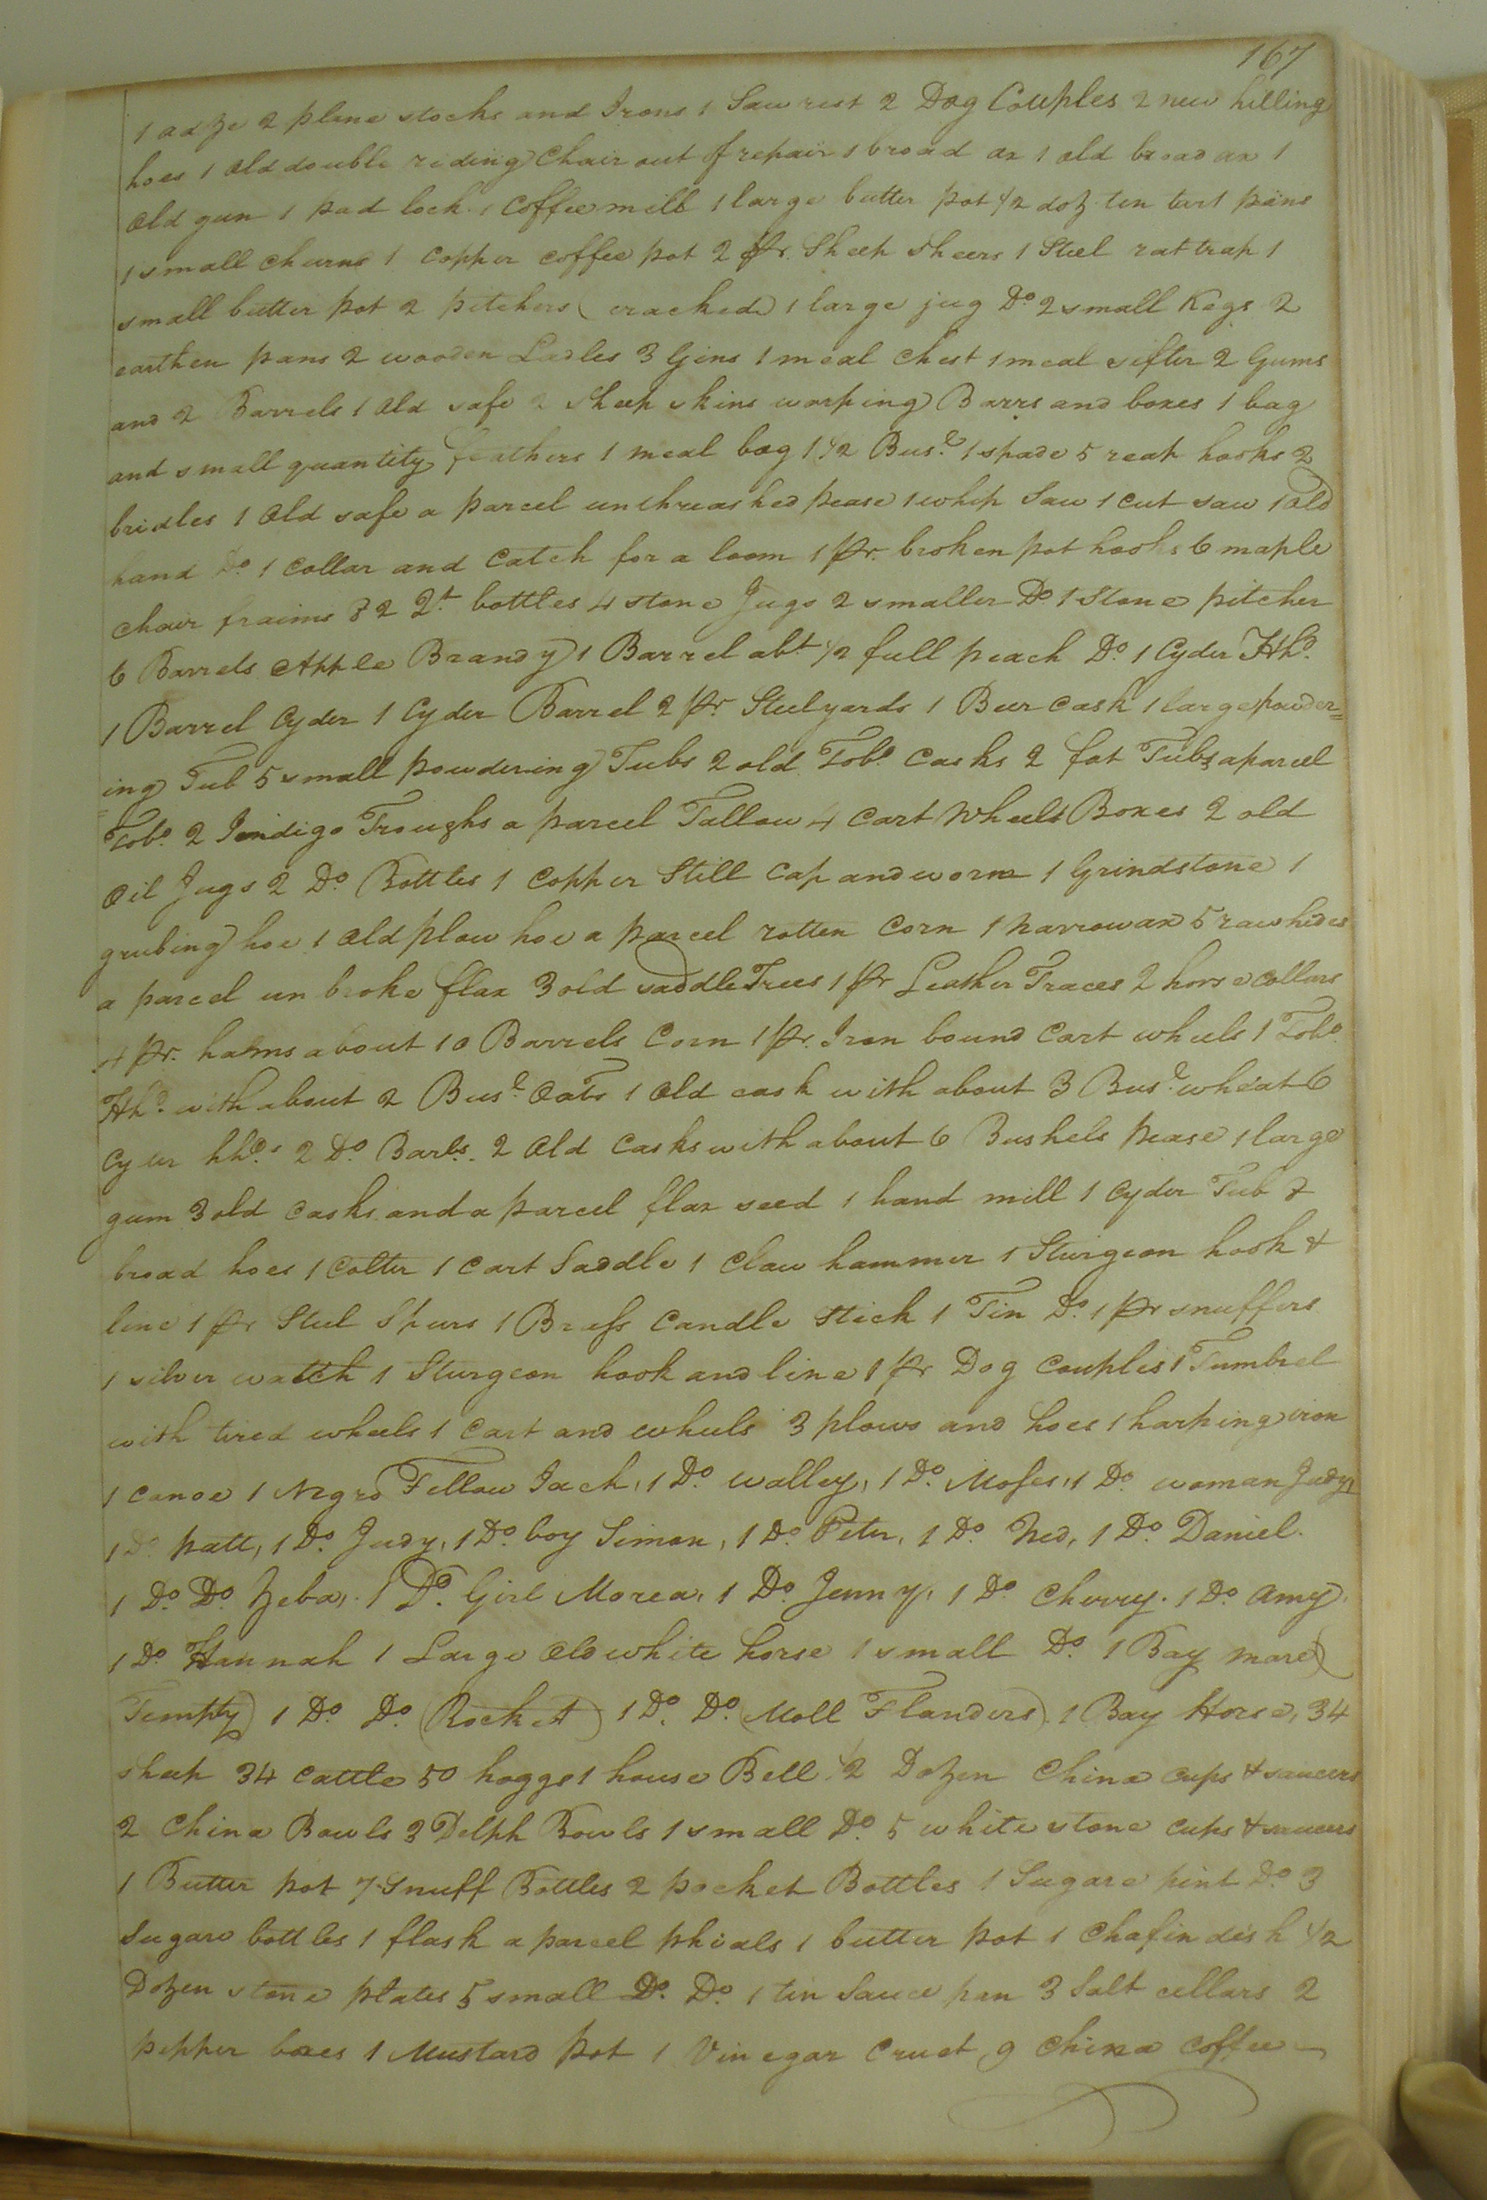 167
1 adze 2 plane stocks and Irons 1 Saw rest 2 Dog Couples 2 new hilling
hoes 1 old double riding Chair out of repair 1 broad ax 1 old broad ax 1
old gun 1 pad lock 1 Coffee mill 1 large butter pot 1/2 doz tin tart pans
1 small churne 1 Copper coffee pot 2 pr. Sheep sheers 1 Steel rat trap 1
small butter pot 2 pitchers (cracked) 1 large jug Do 2 small Kegs 2
earthen pans 2 wooden Ladles 3 Gins 1 meal chest 1 meal sifter 2 Gums
and 2 Barrels 1 old safe 2 sheep skins warping Barrs and boxes 1 bag
and small quantity feathers 1 meal bag 1 1/2 Busl. 1 spade 5 reap hooks 2
bridles 1 old safe a parcel unthreashed pease 1 whip Saw 1 cut saw 1 old
hand Do 1 collar and catch for a loom 1 pr. broken pot hooks 6 maple
chair fraims 82 Qt. bottles 4 stone Jugs 2 smaller Do 1 Stone pitcher
6 Barrels Apple Brandy 1 Barrel abt 1/2 full peach Do. 1 Cyder Hhd.
1 Barrel Cyder 1 Cyder Barrel 2 pr Steelyards 1 Beer cask 1 large powder=
ing Tub 5 small powdering Tubs 2 old Tobo. casks 2 fat Tubs a parcel
Tobo. 2 Indigo Troughs a parcel Tallow 4 Cart Wheels Boxes 2 old
Oil Jugs 2 Do. Bottles 1 Copper Still Cap and worm 1 Grindstone 1
grubing hoe 1 old plow hoe a parcel rotten Corn 1 narrow ax 5 raw hides
a parcel un broke flax 3 old saddle Trees 1 pr Leather Traces 2 horse collars
4 pr. hams about 10 Barrels Corn 1 pr. Iron bound Cart wheels 1 Tobo.
Hhd. with about 2 Busl. Oats 1 old cask with about 3 Busl. wheat 6
Cyder hhds. 2 Do. Barls. 2 old casks with about 6 Bushels pease 1 large
gum 3 old casks and a parcel flax seed 1 hand mill 1 Cyder Tub 7
broad hoes 1 Colter 1 Cart Saddle 1 Claw hammer 1 Sturgeon hook &
line 1 pr Steel Spurs 1 Brass Candle stick 1 Tin Do. 1 pr snuffers
1 silver watch 1 Sturgeon hook and line 1 pr Dog Couples 1 Tumbrel
with tired wheels 1 Cart and wheels 3 plows and hoes 1 harping iron
1 canoe 1 Negro Fellow Jack, 1 Do. walley, 1 Do. Moses, 1 Do. woman Judy
1 Do patt, 1 Do. Judy, 1 Do. boy Simon, 1 Do. Peter, 1 Do. Ned, 1 Do. Daniel.
1 Do. Do. Zeba, 1 Do. Girl Morea, 1 Do. Jenny, 1 Do Cherry. 1 Do. Amy,
1 Do. Hannah 1 Large old white horse 1 small Do. 1 Bay mare)
Tempty) 1 Do. Do. (Rocket) 1 Do. Do. (Moll Flanders). 1 Bay Horse, 34
sheep 34 Cattle 50 hoggs 1 house Bell 1/2 Dozen China cups & saucers
2 China Bowls 3 Delph Bowls 1 small Do. 5 white stone cups & saucers
1 Butter pot 7 Snuff Bottles 2 pocket Bottles 1 Sugare pint Do. 3
Sugare bottles 1 flask a parcel phials 1 butter pot 1 Chafin dish 1/2
Dozen stone plates 5 small Do. Do. 1 tin Sauce pan 3 Salt cellars 2
pepper boxes 1 Mustard pot 1 Vinegar Cruet 9 China Coffee